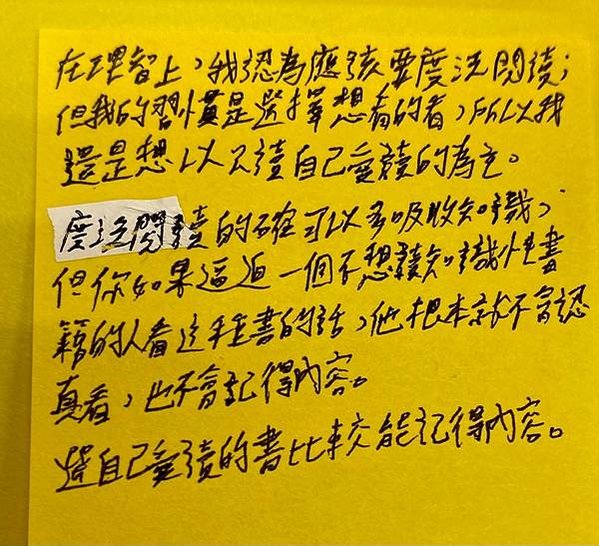 在理智上，我認為應該要廣泛閱讀；
但我的習慣是選擇想看的看，所以我
還是想以只讀自己愛讀的為主。
廣泛閱讀的確可以多吸收知識，
但你如果逼迫一個不想讀知識性書
籍的人看這種書的話，他根本就不會認
真看，也不會記得內容。
選自己愛讀的書比較能記得內容。